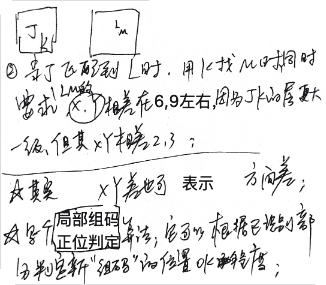 J K
L M
② 若J匹配到L时，用K找M时同时
要求 LM的 X.Y 相差在6,9左右,因为JK的层更大
一级,但其XY相差2,3；
☆其实 XY差也可 表示 方向差；
☆写个 局部组码 正位判定 算法；它可以根据已识别部
分判定新“组码”的位置OK程度；